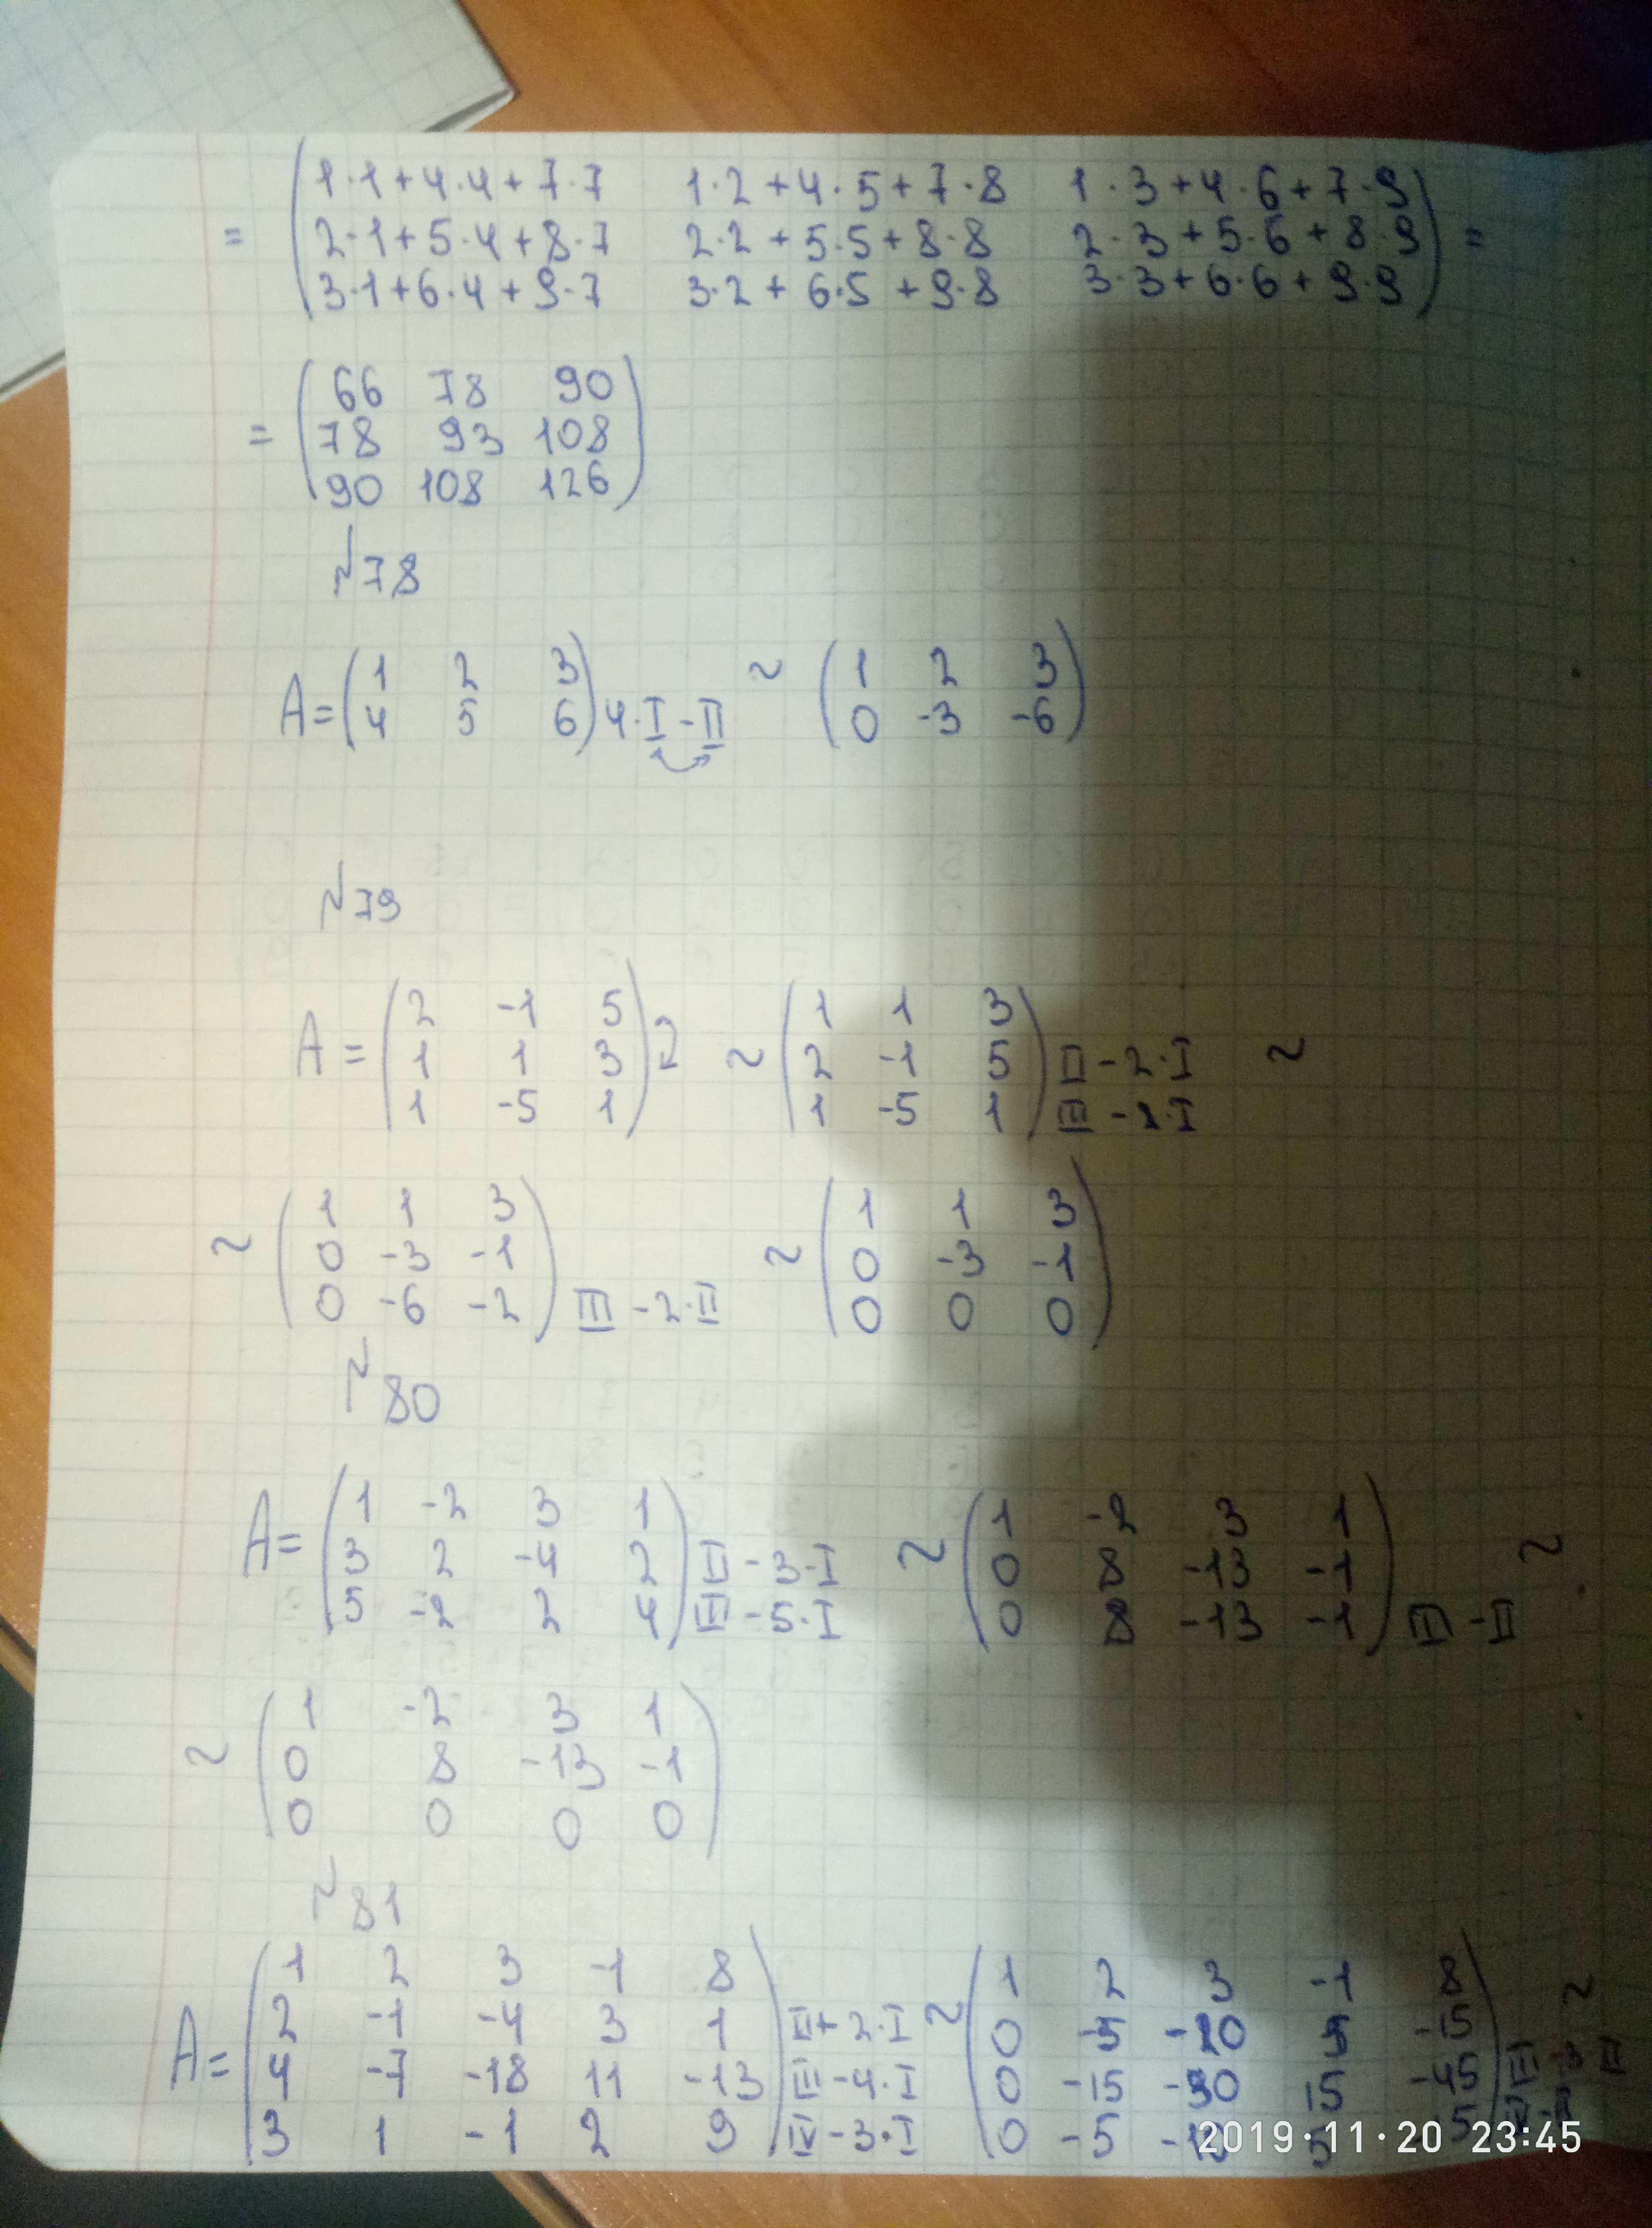 = (1·1+4·4+7·7 1·2+4·5+7·8 1·3+4·6+7·9
2·1+5·4+8·7 2·2+5·5+8·8 2·3+5·6+8·9
3·1+6·4+9·7 3·2+6·5+9·8 3·3+6·6+9·9) =
= (66 78 90
78 93 108
90 108 126)
№78
A = (1 2 3
4 5 6) 4·I - II ~ (1 2 3
0 -3 -6)
№79
A = (2 -1 5
1 1 3
1 -5 1) ~ (1 1 3
2 -1 5
1 -5 1) II - 2·I
III - 1·I ~
~ (1 1 3
0 -3 -1
0 -6 -2) III - 2·II ~ (1 1 3
0 -3 -1
0 0 0)
№80
A = (1 -2 3 1
3 2 -4 2
5 -2 2 4) II - 3·I
III - 5·I ~ (1 -2 3 1
0 8 -13 -1
0 8 -13 -1) III - II ~
~ (1 -2 3 1
0 8 -13 -1
0 0 0 0)
№81
A = (1 2 3 -1 8
2 -1 -4 3 1
4 -7 -18 11 -13
3 1 -1 2 9) II + 2·I
III - 4·I
IV - 3·I ~ (1 2 3 -1 8
0 -5 -10 5 -15
0 -15 -30 15 -45
0 -5 5) ~
2019·11·20 23:45